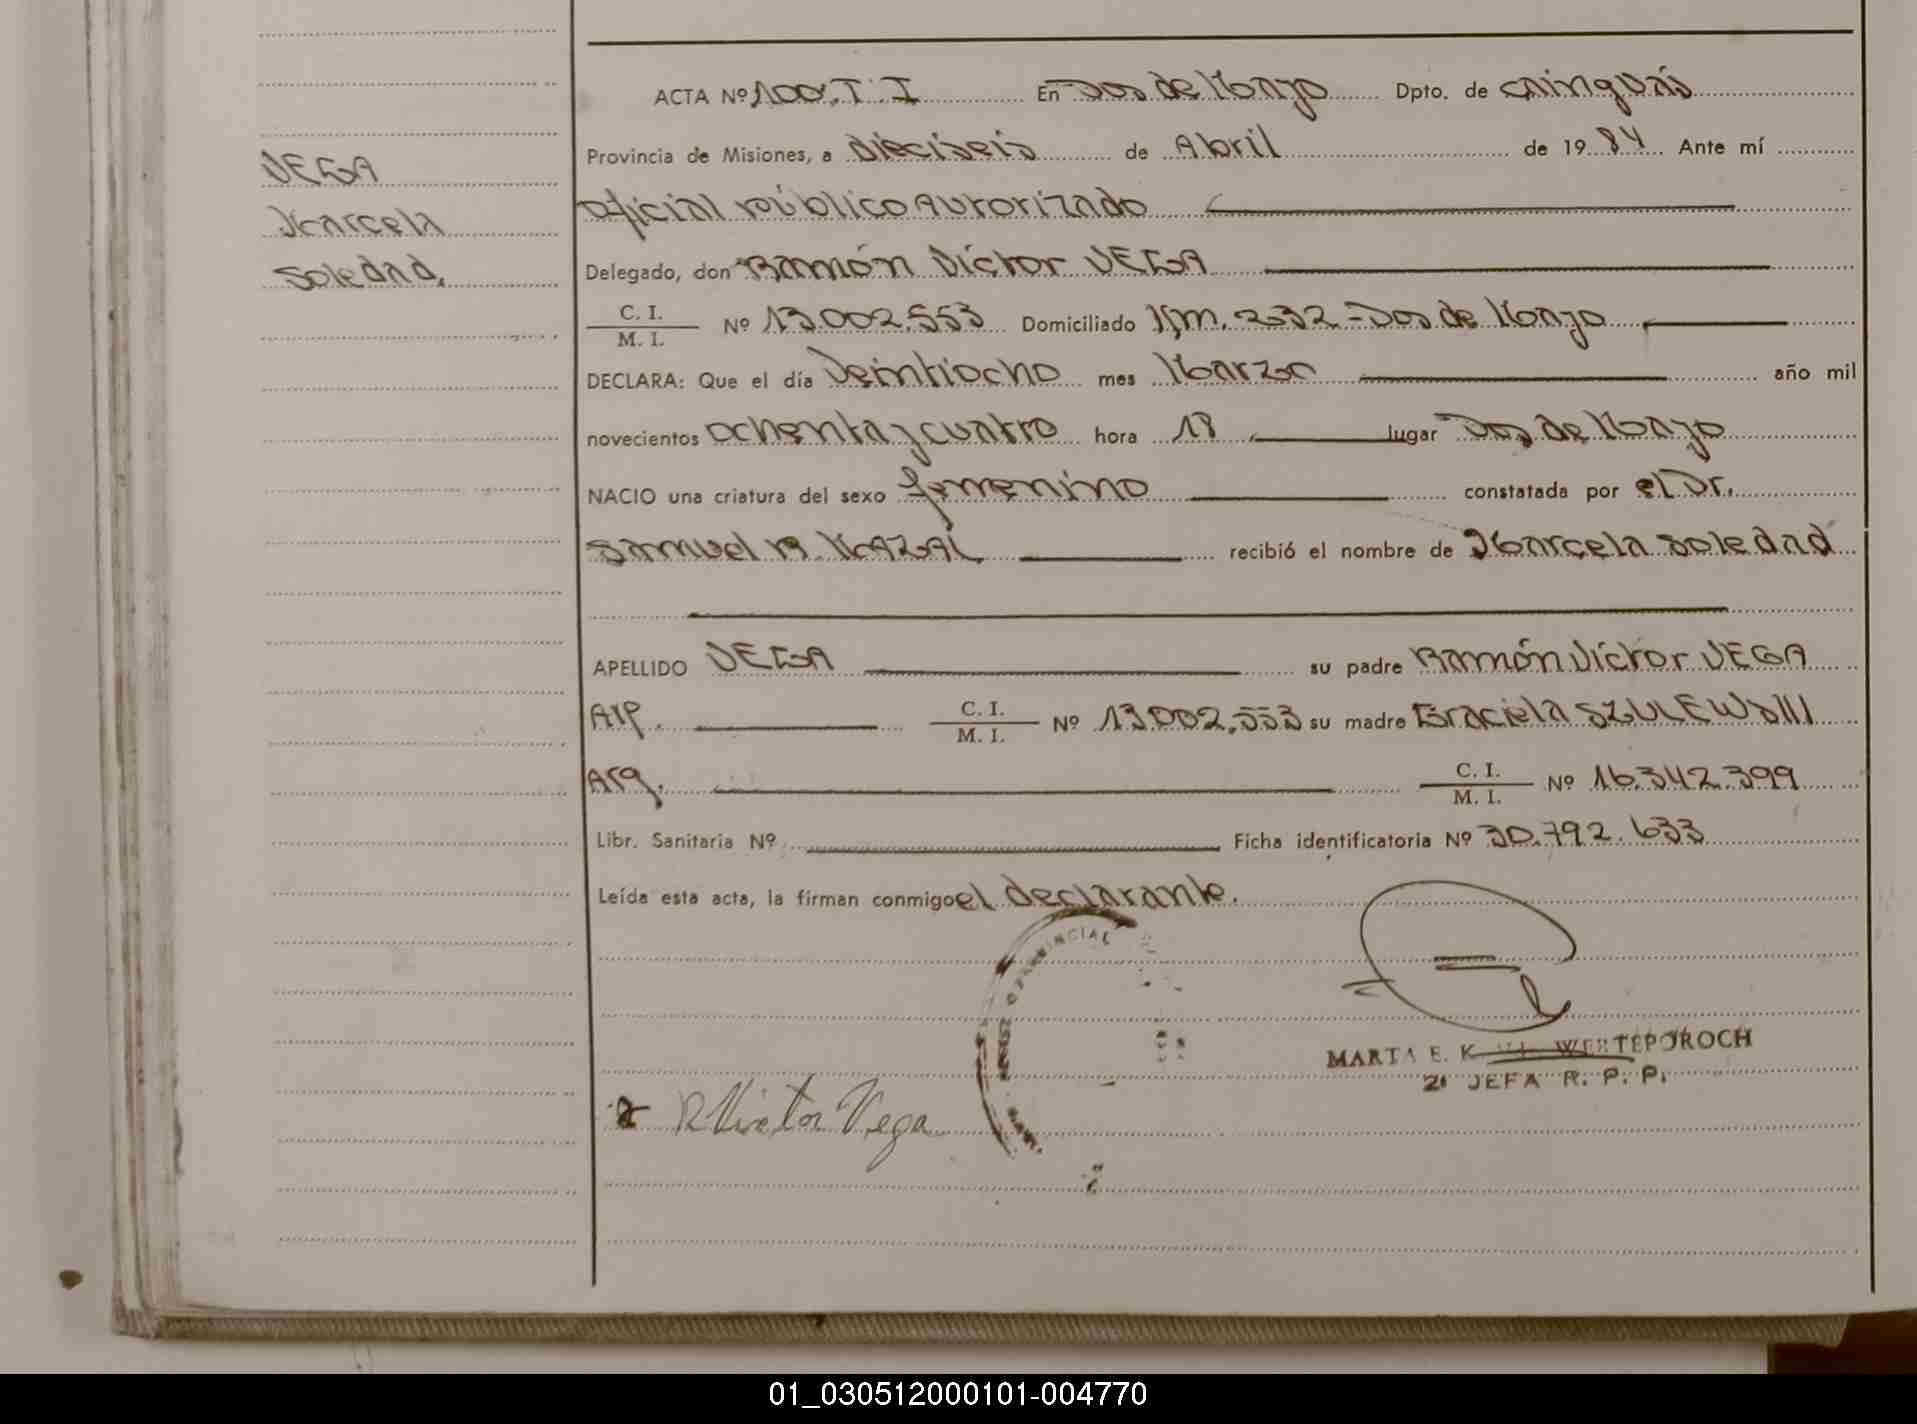 ACTA Nº 100. T. I En Dos de Mayo Dpto. de Cainguás
Provincia de Misiones, a dieciseis de Abril de 1984 Ante mí
VEGA
Oficial público Autorizado
Marcela
Soledad.
Delegado, don Ramón Víctor VEGA
C. I.
M. I. Nº 13.002.553 Domiciliado Km. 232 - Dos de Mayo
DECLARA: Que el día Veintiocho mes Marzo año mil
novecientos ochenta y cuatro hora 18 lugar Dos de Mayo
NACIO una criatura del sexo femenino constatada por el Dr.
Samuel recibió el nombre de Marcela Soledad
APELLIDO VEGA su padre Ramón Víctor VEGA
Arg. C. I.
M. I. Nº 13.002.553 su madre Graciela SZULEWSKI
Arg. C. I.
M. I. Nº 16.342.399
Libr. Sanitaria Nº Ficha identificatoria Nº 30.792.633
Leída esta acta, la firman conmigo el declarante.
PROVINCIAL
MARTA E. K. WERTEPOROCH
JEFA R. P. P.
R Victor Vega
01_030512000101-004770